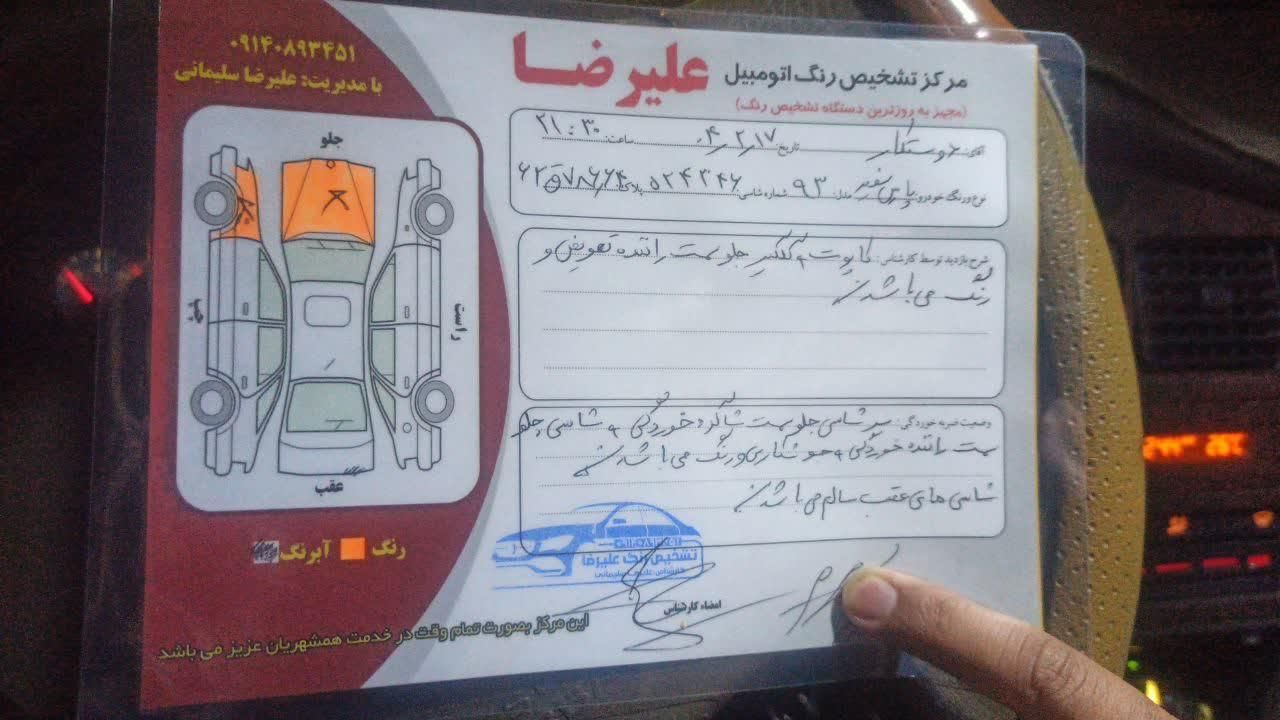 مرکز تشخیص رنگ اتومبیل علیرضا
(مجهز به روزترین دستگاه تشخیص رنگ)
۰۹۱۴۰۸۹۳۴۵۱
با مدیریت: علیرضا سلیمانی
آقای: دوستکار تاریخ: ۴/۲/۱۷ ساعت: ۲۱:۳۰
نوع و رنگ خودرو: پارس سفید مدل: ۹۳ شماره شاسی: ۵۲۴۳۴۶ پلاک:
شرح بازدید توسط کارشناس: کاپوت و گلگیر جلو سمت راننده تعویض و
رنگ می باشدن
وضعیت ضربه خوردگی: سر شاسی جلو سمت شاگرد خوردگی و شاسی جلو
سمت راننده خوردگی و جوشکاری و رنگ می باشدن
شاسی های عقب سالم می باشدن
جلو
راست
چپ
عقب
رنگ
آبرنگ
تشخیص رنگ علیرضا
کارشناس: علیرضا سلیمانی
امضاء کارشناس
این مرکز بصورت تمام وقت در خدمت همشهریان عزیز می باشد